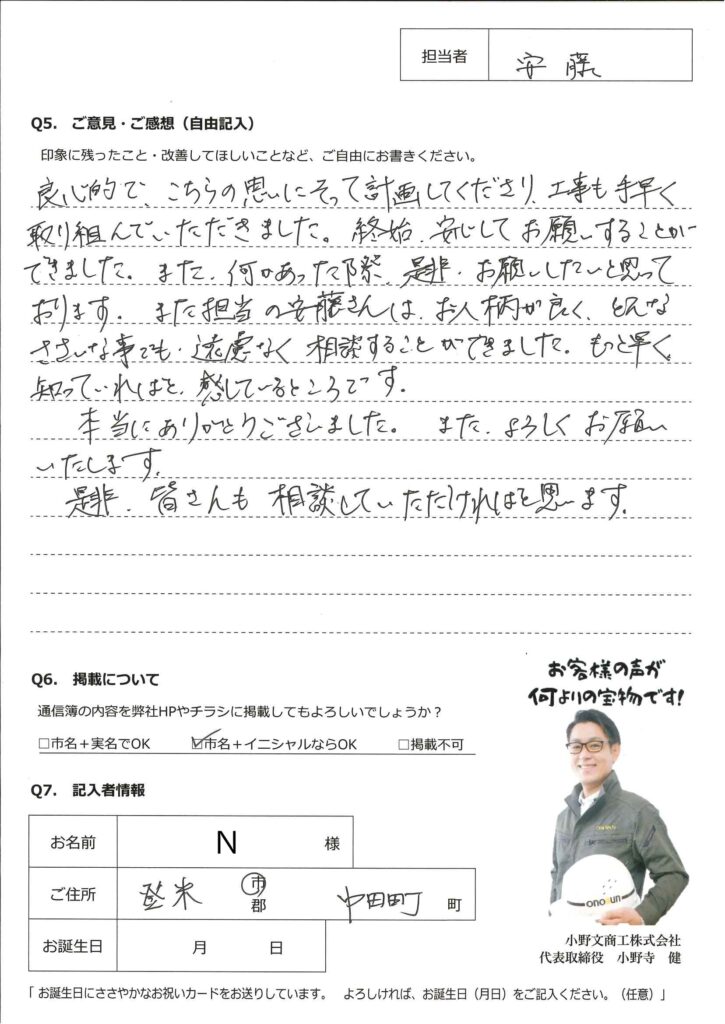 担当者 安藤
Q5. ご意見・ご感想（自由記入）
印象に残ったこと・改善してほしいことなど、ご自由にお書きください。
良心的で、こちらの思いにそって計画してくださり、工事も手早く
取り組んでいただきました。終始、安心してお願いすることが
できました。また、何かあった際、是非、お願いしたいと思って
おります。また担当の安藤さんは、お人柄が良く、どんな
ささいな事でも、遠慮なく相談することができました。もっと早く
知っていればと、感じているところです。
本当にありがとうございました。また、よろしくお願い
いたします。
是非、皆さんも相談していただければと思います。
Q6. 掲載について
通信簿の内容を弊社HPやチラシに掲載してもよろしいでしょうか？
□市名＋実名でOK ☑市名＋イニシャルならOK □掲載不可
お客様の声が
何よりの宝物です!
Q7. 記入者情報
お名前 N 様
ご住所 登米 市 郡 中田町 町
お誕生日 月 日
onoBun
小野文商工株式会社
代表取締役 小野寺 健
「お誕生日にささやかなお祝いカードをお送りしています。 よろしければ、お誕生日（月日）をご記入ください。（任意）」